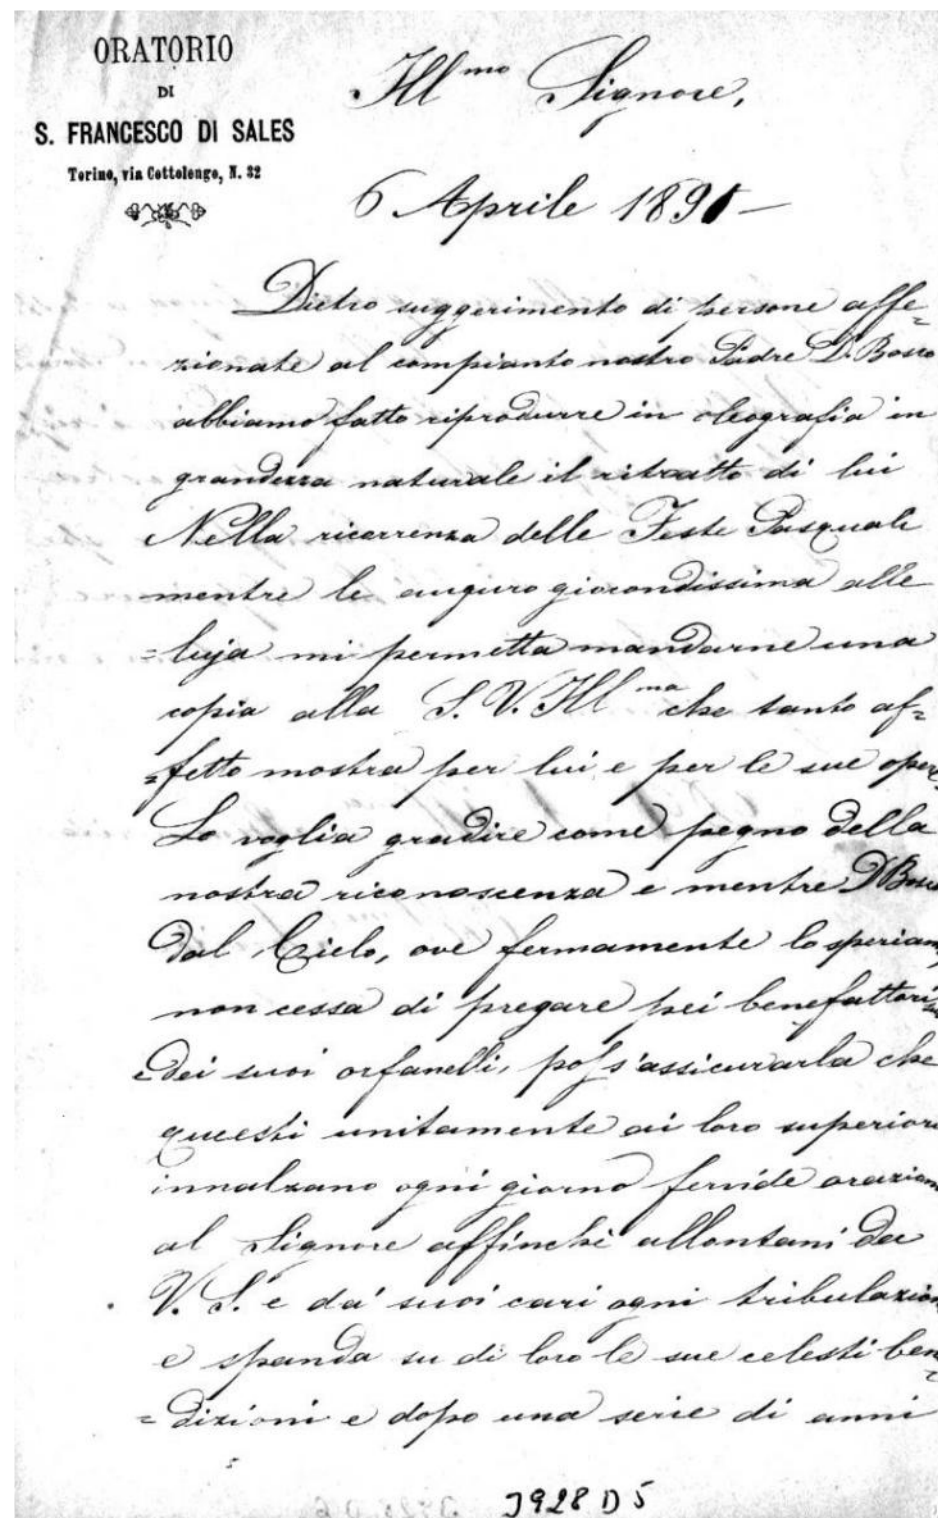 ORATORIO
DI
S. FRANCESCO DI SALES
Torino, via Cottolengo, N. 32
Ill.mo Signore,
6 Aprile 1891 —
Dietro suggerimento di persone affe=
zionate al compianto nostro Padre D. Bosco
abbiamo fatto riprodurre in oleografia in
grandezza naturale il ritratto di lui
Nella ricorrenza delle Feste Pasquali
mentre le auguro giocondissima alle
=luja mi permetta mandarne una
copia alla S. V. Ill ma che tanto af=
=fetto mostra per lui e per le sue opere.
Lo voglia gradire come pegno della
nostra riconoscenza e mentre D Bosco
dal Cielo, ove fermamente lo speriam
non cessa di pregare pei benefattori
e dei suoi orfanelli, poss'assicurarla che
questi unitamente ai loro superiori
innalzano ogni giorno fervide orazioni
al Signore affinchè allontani da
V. S. e da' suoi cari ogni tribulazion
e spanda su di loro le sue celesti ben=
=dizioni e dopo una serie di anni
J928 D5